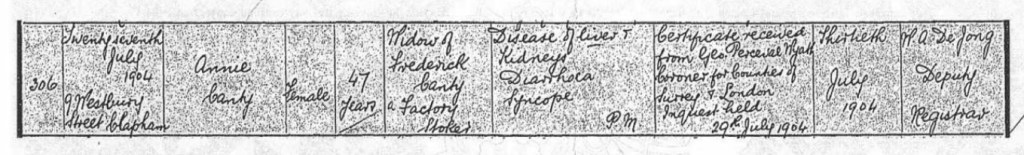 306
Twenty seventh
July
1904
9 Westbury
Street Clapham
Annie
Canty
Female
47
years
Widow of
Frederick
Canty
a Factory
Stoker
Disease of liver &
Kidneys
Diarrhoea
Syncope
P.M.
Certificate received
from Geo. Percival Wyatt
Coroner for Counties of
Surrey & London
Inquest held
29th July 1904
Thirtieth
July
1904
W. A. De Jong
Deputy
Registrar